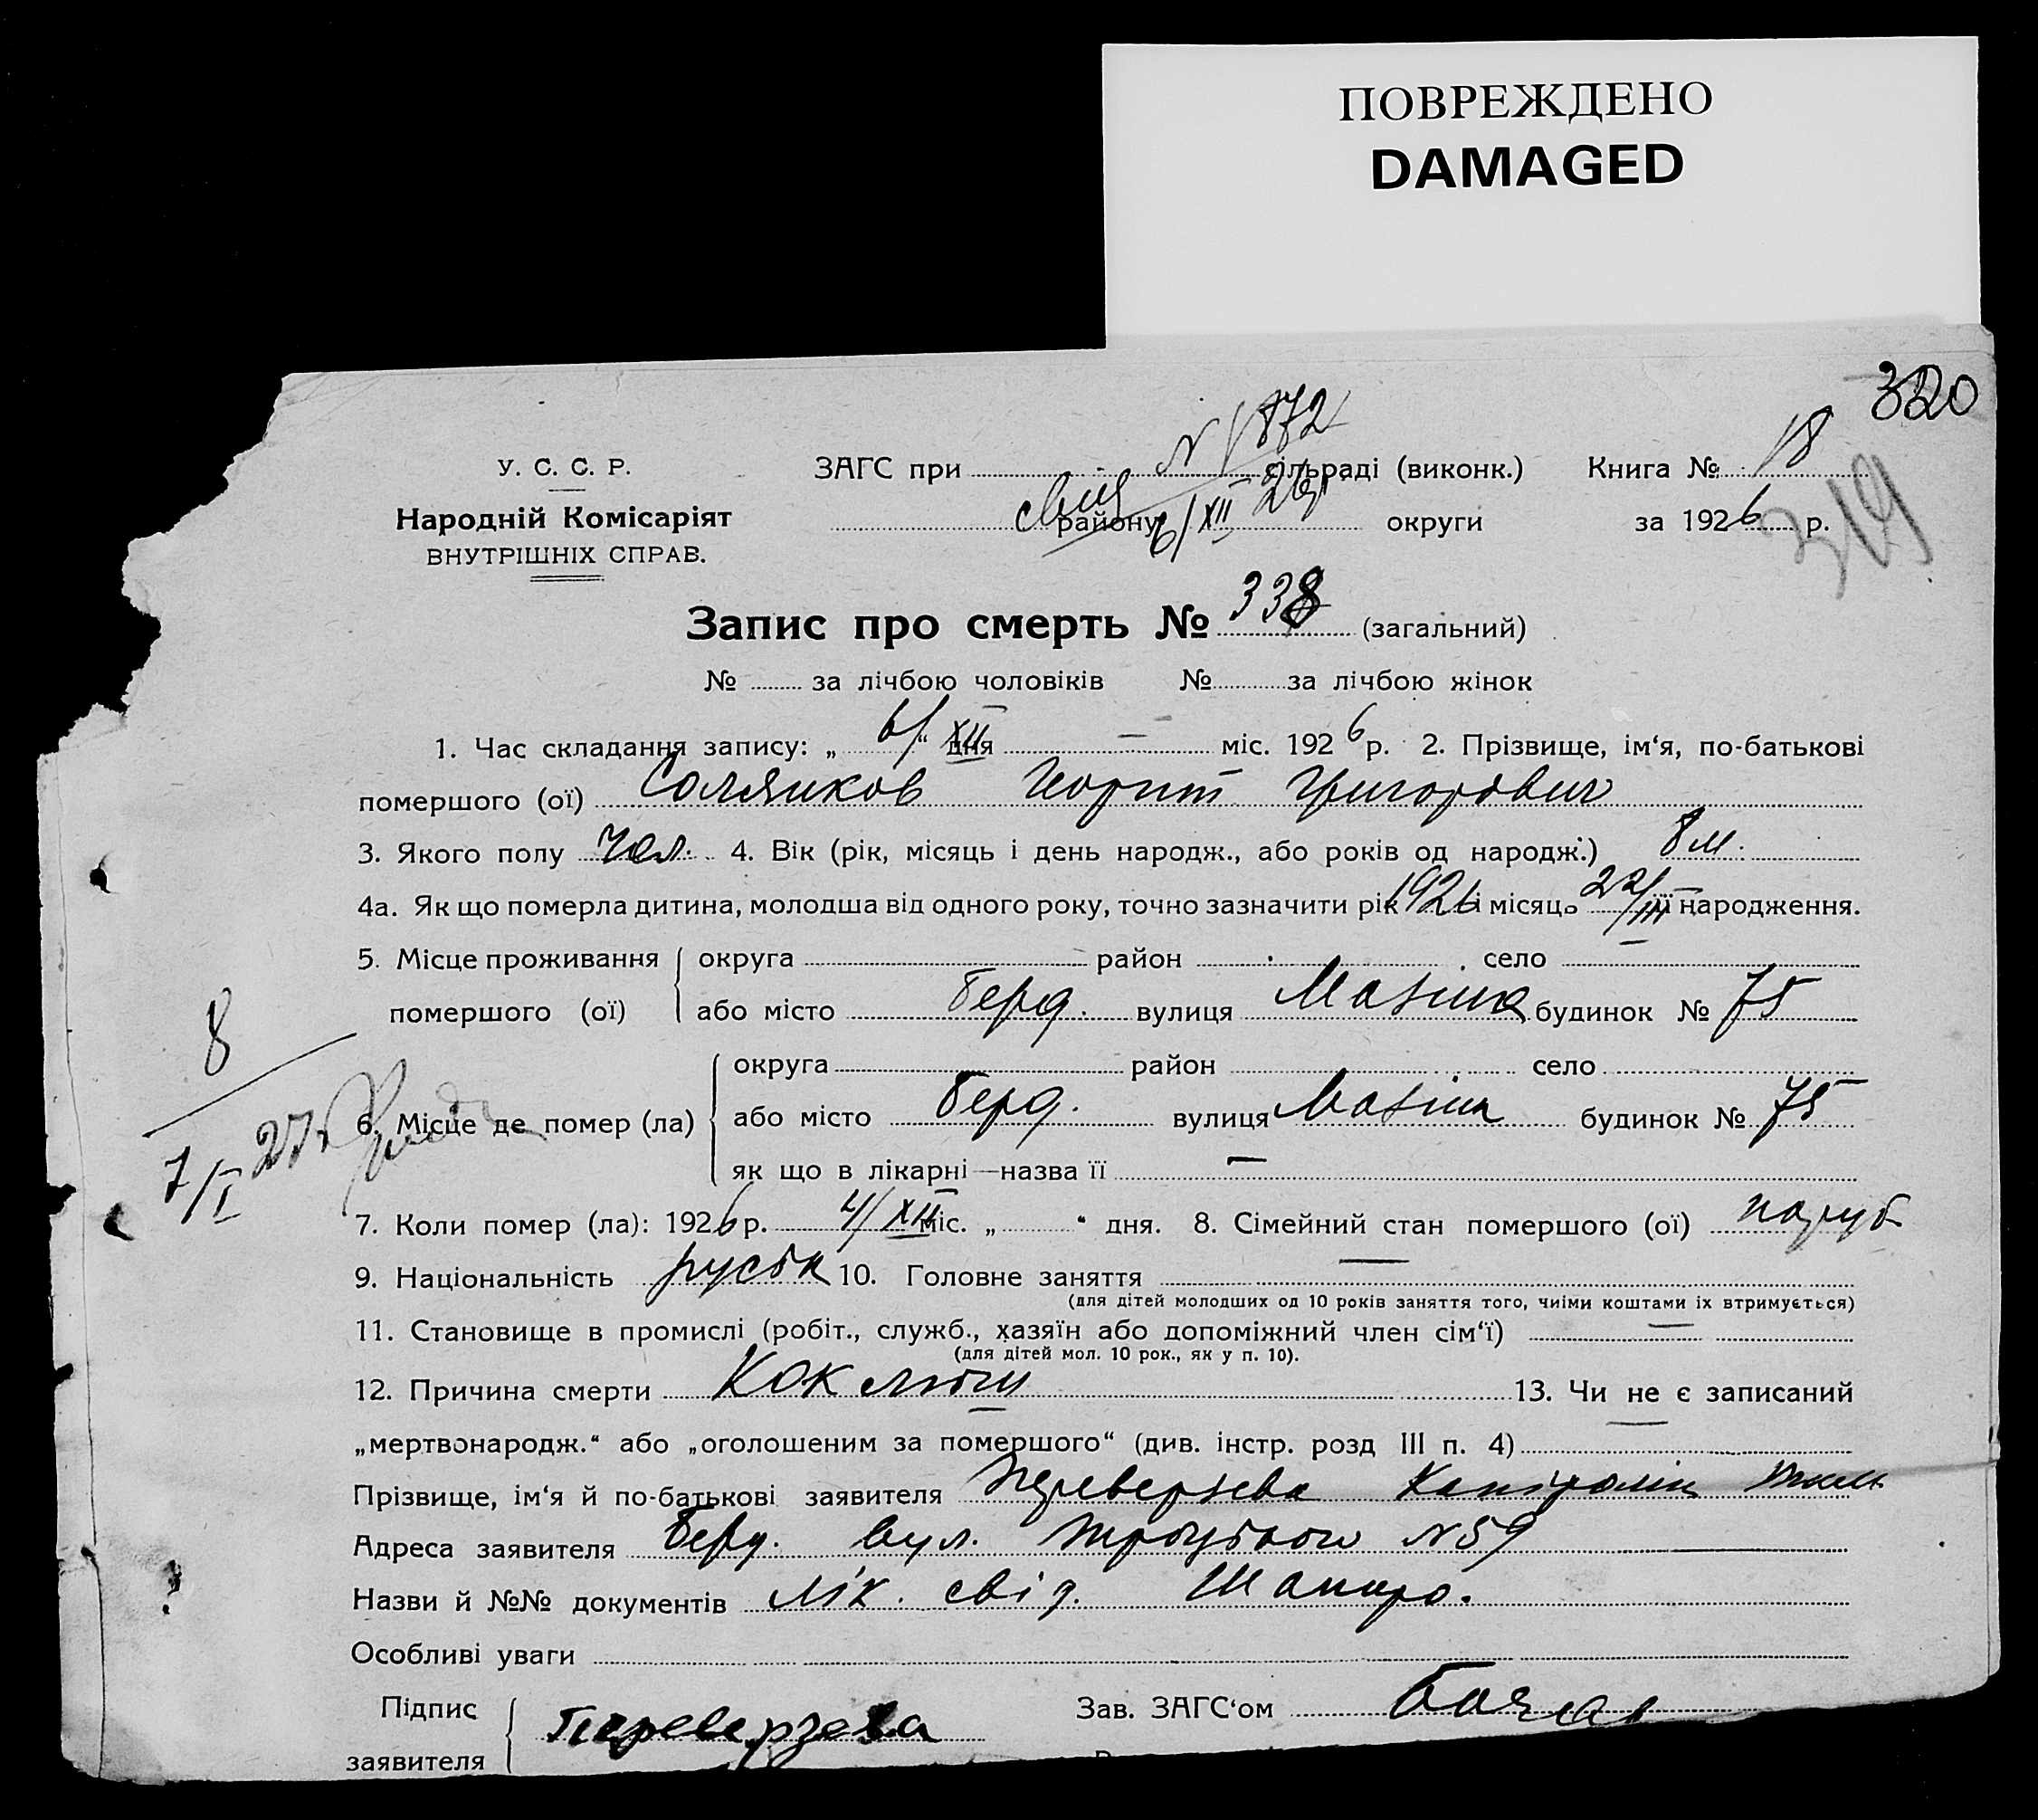 ПОВРЕЖДЕНО
DAMAGED
320
N 1872
У. С. С. Р.
ЗАГС при сільраді (виконк.) Книга № 18
Народній Комісаріят
ВНУТРІШНІХ СПРАВ.
району 6/XII 26 округи за 1926 р.
319
Запис про смерть № 338 (загальний)
№ за лічбою чоловіків № за лічбою жінок
1. Час складання запису: „ 6/ “ XII дня — міс. 1926 р. 2. Прізвище, ім‘я, по-батькові
помершого (ої) Соляников Георгит Григорович
3. Якого полу чол. 4. Вік (рік, місяць і день народж., або років од народж.) 8 м.
4а. Як що померла дитина, молодша від одного року, точно зазначити рік 1926 і місяць 22/III її народження.
5. Місце проживання помершого (ої) округа район село —
або місто Берд. вулиця Мазіна будинок № 75
8
7/I 27
6. Місце де помер (ла) округа район село
або місто Берд. вулиця Мазіна будинок № 75
як що в лікарні—назва її —
7. Коли помер (ла): 1926 р. 4/XII міс. „ “ дня. 8. Сімейний стан помершого (ої) паруб
9. Національність руськ 10. Головне заняття —
(для дітей молодших од 10 років заняття того, чиїми коштами їх втримується)
11. Становище в промислі (робіт., служб., хазяїн або допоміжний член сім‘ї) —
(для дітей мол. 10 рок., як у п. 10).
12. Причина смерти Коклюш 13. Чи не є записаний
„мертвонародж.“ або „оголошеним за помершого“ (див. інстр. розд III п. 4) —
Прізвище, ім‘я й по-батькові заявителя Переверзева Капіталіна
Адреса заявителя Берд. вул. Троцького N 59
Назви й №№ документів лік. свід. Шапиро.
Особливі уваги
Підпис заявителя Переверзева Зав. ЗАГС‘ом